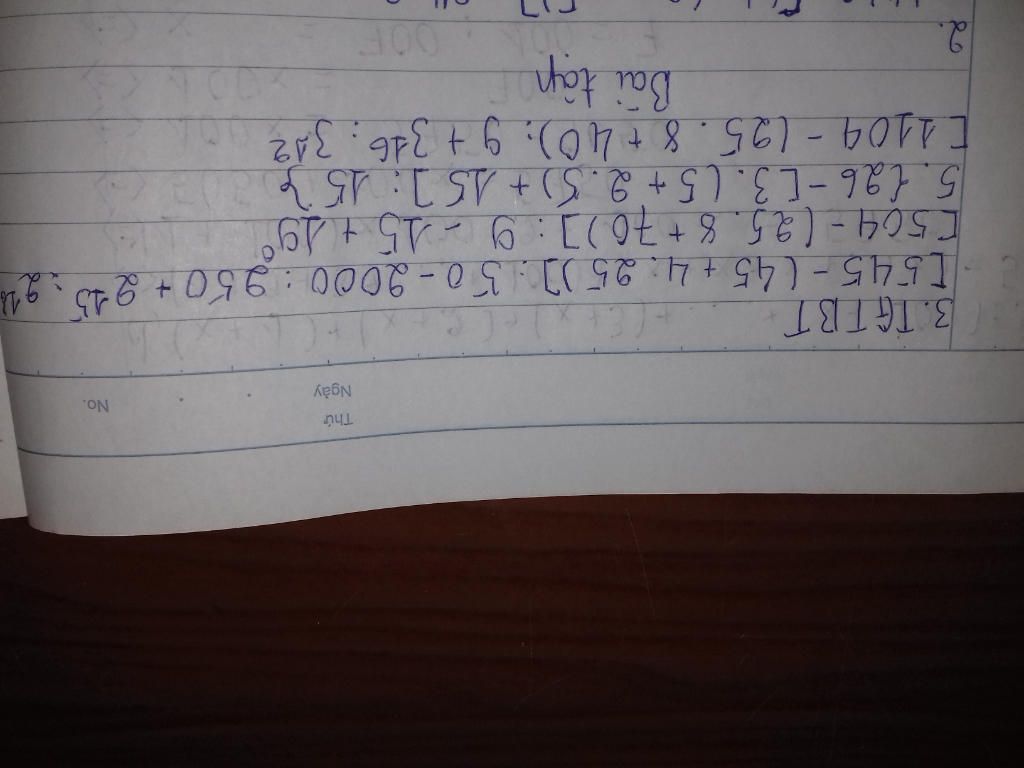 Thứ
Ngày No.
3. TGTBT
[545 - (45 + 4 . 25)] : 50 - 2000 : 250 + 2¹⁵ : 2¹³
[504 - (25 . 8 + 70)] : 9 - 15 + 19⁰
5 . {26 - [3 . (5 + 2 . 5) + 15] : 15}
[1104 - (25 . 8 + 40) : 9 + 3¹⁶ : 3¹²
Bài tập
2.